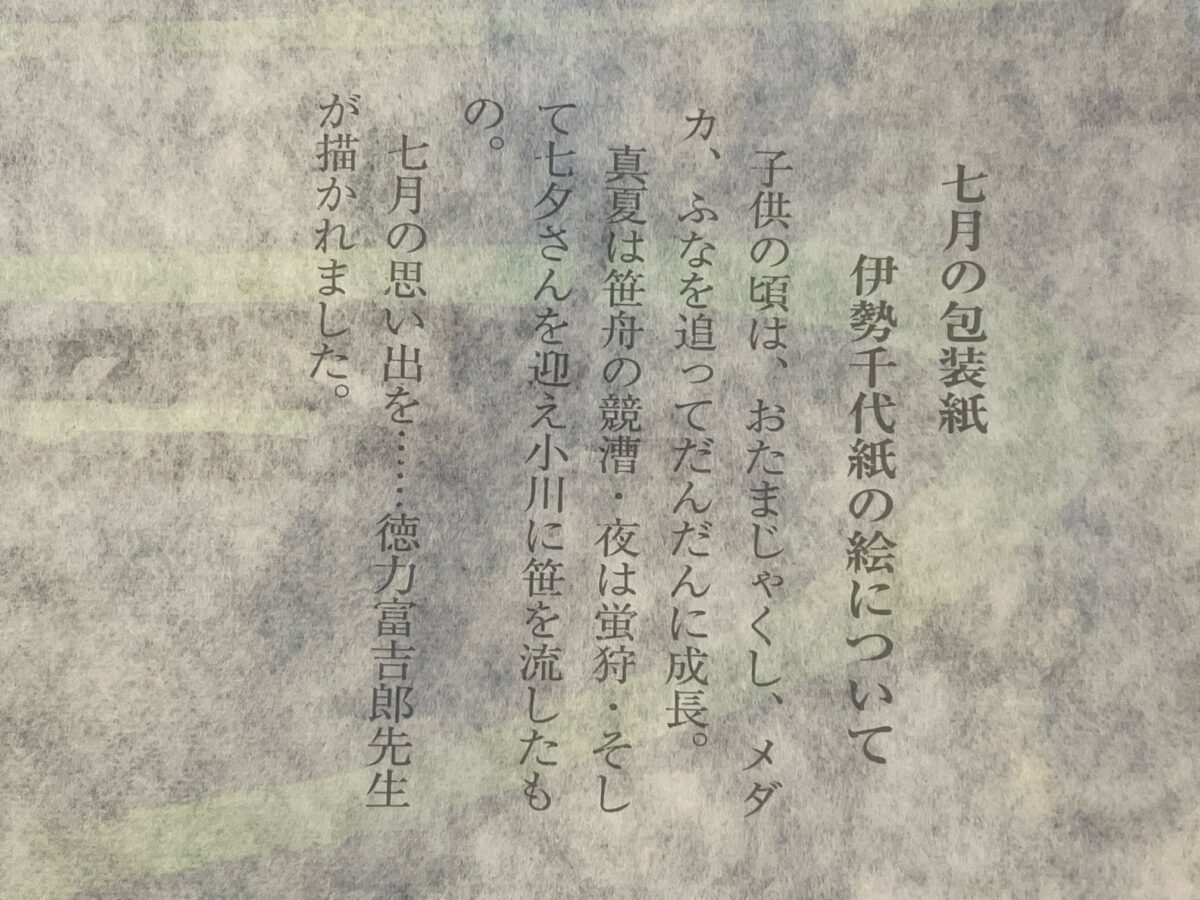 七月の包装紙
伊勢千代紙の絵について
子供の頃は、おたまじゃくし、メダ
カ、ふなを追ってだんだんに成長。
真夏は笹舟の競漕・夜は蛍狩・そし
て七夕さんを迎え小川に笹を流したも
の。
七月の思い出を……徳力富吉郎先生
が描かれました。